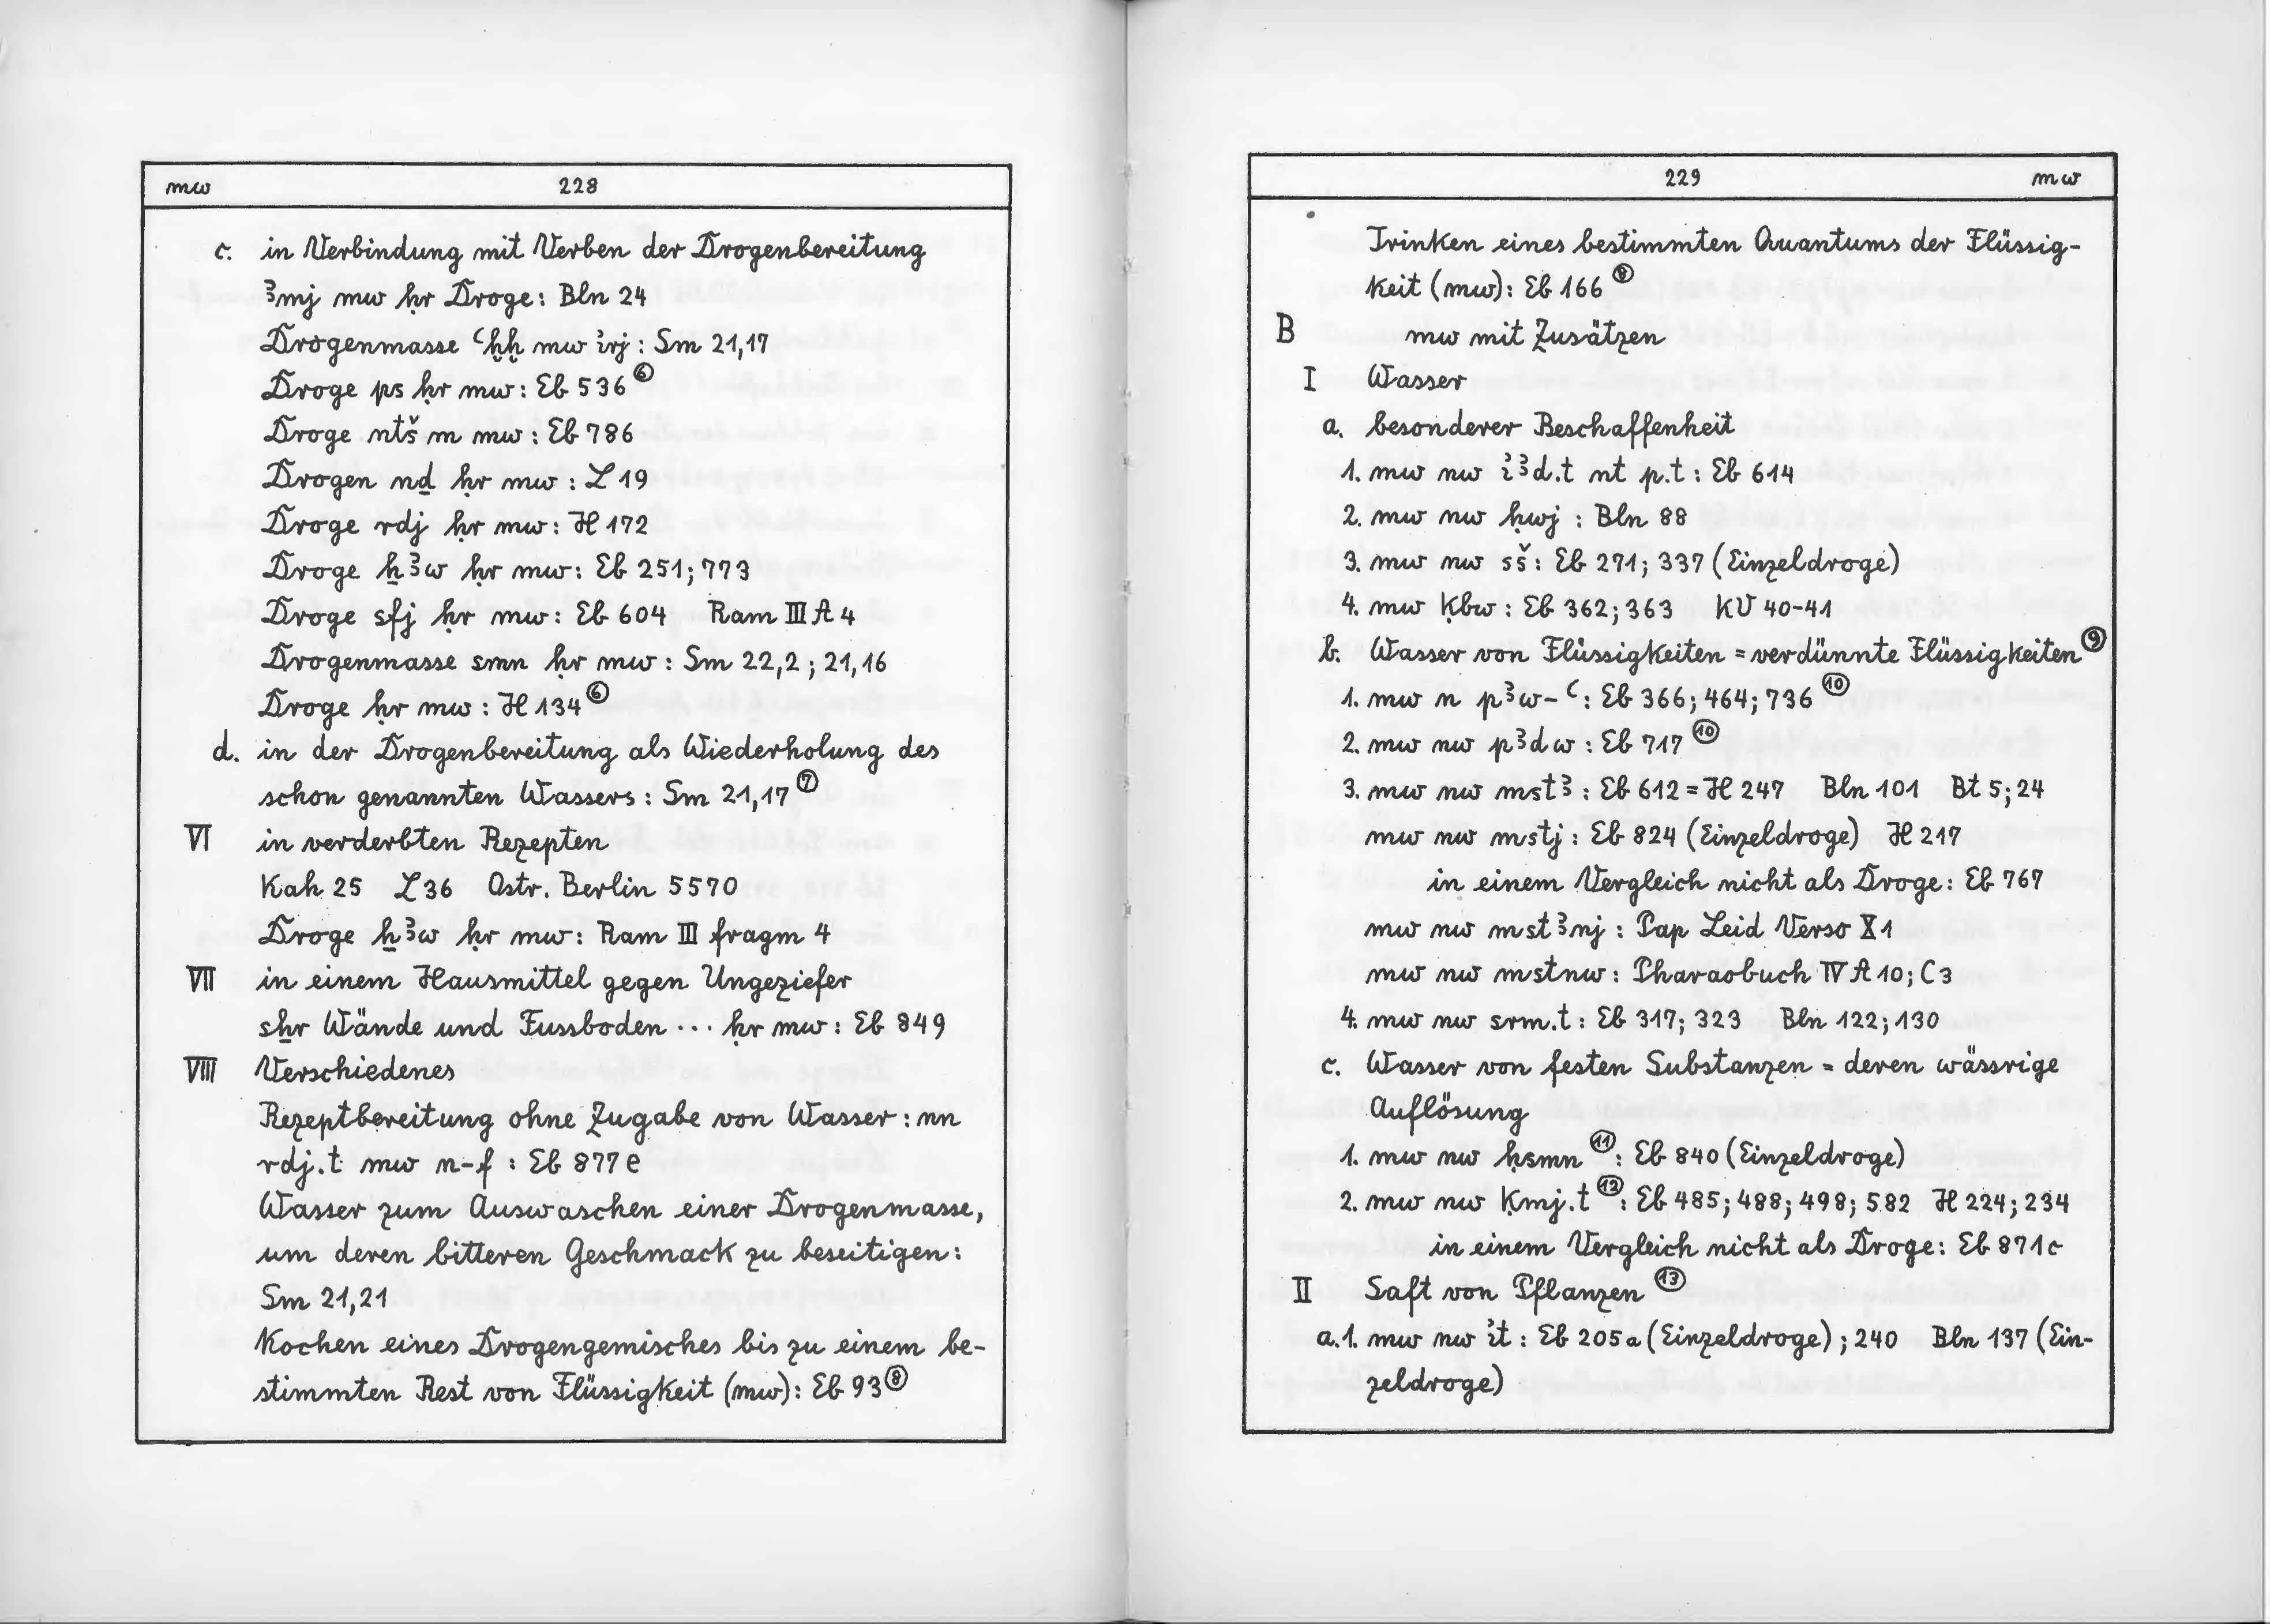 mw 228
c. in Verbindung mit Verben der Drogenbereitung
ꜣmj mw ḥr Droge: Bln 24
Drogenmasse ꜥḫḫ mw ı͗rj: Sm 21,17
Droge ps ḥr mw: Eb 536 ⑥
Droge ntš m mw: Eb 786
Drogen nḏ ḥr mw: L 19
Droge rdj ḥr mw: H 172
Droge ẖꜣw ḥr mw: Eb 251; 773
Droge sfj ḥr mw: Eb 604 Ram III A 4
Drogenmasse smn ḥr mw: Sm 22,2; 21,16
Droge ḥr mw: H 134 ⑥
d. in der Drogenbereitung als Wiederholung des
schon genannten Wassers: Sm 21,17 ⑦
VI in verderbten Rezepten
Kah 25 L 36 Ostr. Berlin 5570
Droge ẖꜣw ḥr mw: Ram III fragm 4
VII in einem Hausmittel gegen Ungeziefer
sẖr Wände und Fussboden ... ḥr mw: Eb 849
VIII Verschiedenes
Rezeptbereitung ohne Zugabe von Wasser: nn
rdj.t mw n-f: Eb 877 e
Wasser zum Auswaschen einer Drogenmasse,
um deren bitteren Geschmack zu beseitigen:
Sm 21,21
Kochen eines Drogengemisches bis zu einem be-
stimmten Rest von Flüssigkeit (mw): Eb 93 ⑧
229 mw
Trinken eines bestimmten Quantums der Flüssig-
keit (mw): Eb 166 ⑧
B mw mit Zusätzen
I Wasser
a. besonderer Beschaffenheit
1. mw nw ı͗ꜣd.t nt p.t: Eb 614
2. mw nw ḥwj: Bln 88
3. mw nw sš: Eb 271; 337 (Einzeldroge)
4. mw ḳbw: Eb 362; 363 KV 40-41
b. Wasser von Flüssigkeiten = verdünnte Flüssigkeiten ⑨
1. mw n pꜣw-ꜥ: Eb 366; 464; 736 ⑩
2. mw nw pꜣdw: Eb 717 ⑩
3. mw nw mstꜣ: Eb 612 = H 247 Bln 101 Bt 5; 24
mw nw mstj: Eb 824 (Einzeldroge) H 217
in einem Vergleich nicht als Droge: Eb 767
mw nw mstꜣnj: Pap Leid Verso X 1
mw nw mstnw: Pharaobuch IV A 10; C 3
4. mw nw srm.t: Eb 317; 323 Bln 122; 130
c. Wasser von festen Substanzen = deren wässrige
Auflösung
1. mw nw ḥsmn ⑪: Eb 840 (Einzeldroge)
2. mw nw ḳmj.t ⑫: Eb 485; 488; 498; 582 H 224; 234
in einem Vergleich nicht als Droge: Eb 871c
II Saft von Pflanzen ⑬
a.1. mw nw ı͗t: Eb 205a (Einzeldroge); 240 Bln 137 (Ein-
zeldroge)